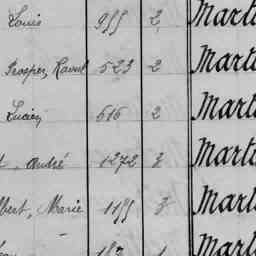 Louis 955 2 Mart
Prosper, Raoul 523 2 Mart
Lucien 616 2 Mart
, André 1272 3 Mart
bert, Marie 1155 3 Mart
Mart